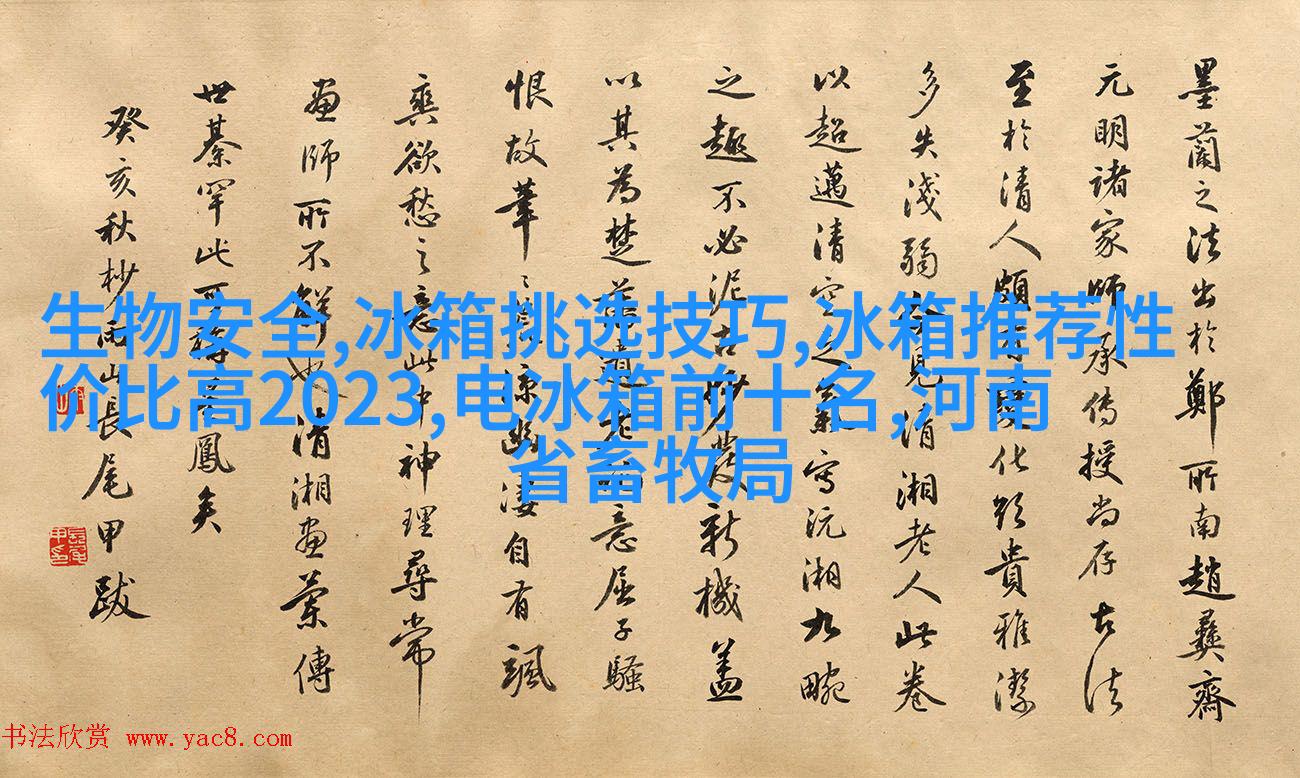 墨蘭之法出於鄭所南趙彝齋
元明諸家師承傳授尚存古法
至於清人頗化貴雅潔
多失淺弱見清湘老人此卷
以超邁清空之氣寫沅湘九畹
之趣不必泥古妙發新機蓋
以其為楚藩遺老意屈子騷
恨故筆〻涼幽凄自有颯
爽欲愁之意此中神理尋常
畫師所不解也清湘畫蘭傳
世綦罕此可鳳矣
癸亥秋杪雨山長尾甲跋
生物安全,冰箱挑选技巧,冰箱推荐性
价比高2023,电冰箱前十名,河南
省畜牧局
书法欣赏 www.yac8.com